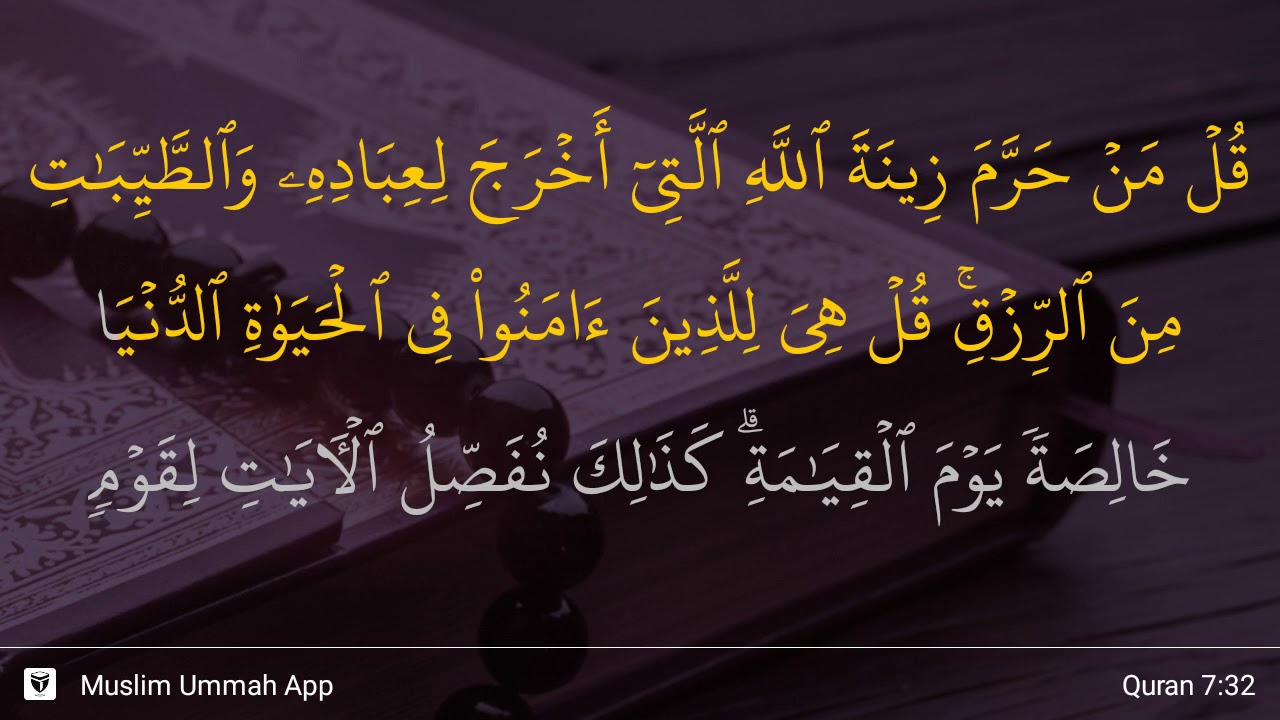 قُلْ مَنْ حَرَّمَ زِينَةَ ٱللَّهِ ٱلَّتِىٓ أَخْرَجَ لِعِبَادِهِۦ وَٱلطَّيِّبَـٰتِ
مِنَ ٱلرِّزْقِ ۚ قُلْ هِىَ لِلَّذِينَ ءَامَنُوا۟ فِى ٱلْحَيَوٰةِ ٱلدُّنْيَا
خَالِصَةً يَوْمَ ٱلْقِيَـٰمَةِ ۗ كَذَٰلِكَ نُفَصِّلُ ٱلْـَٔايَـٰتِ لِقَوْمٍ
Muslim Ummah App
Quran 7:32